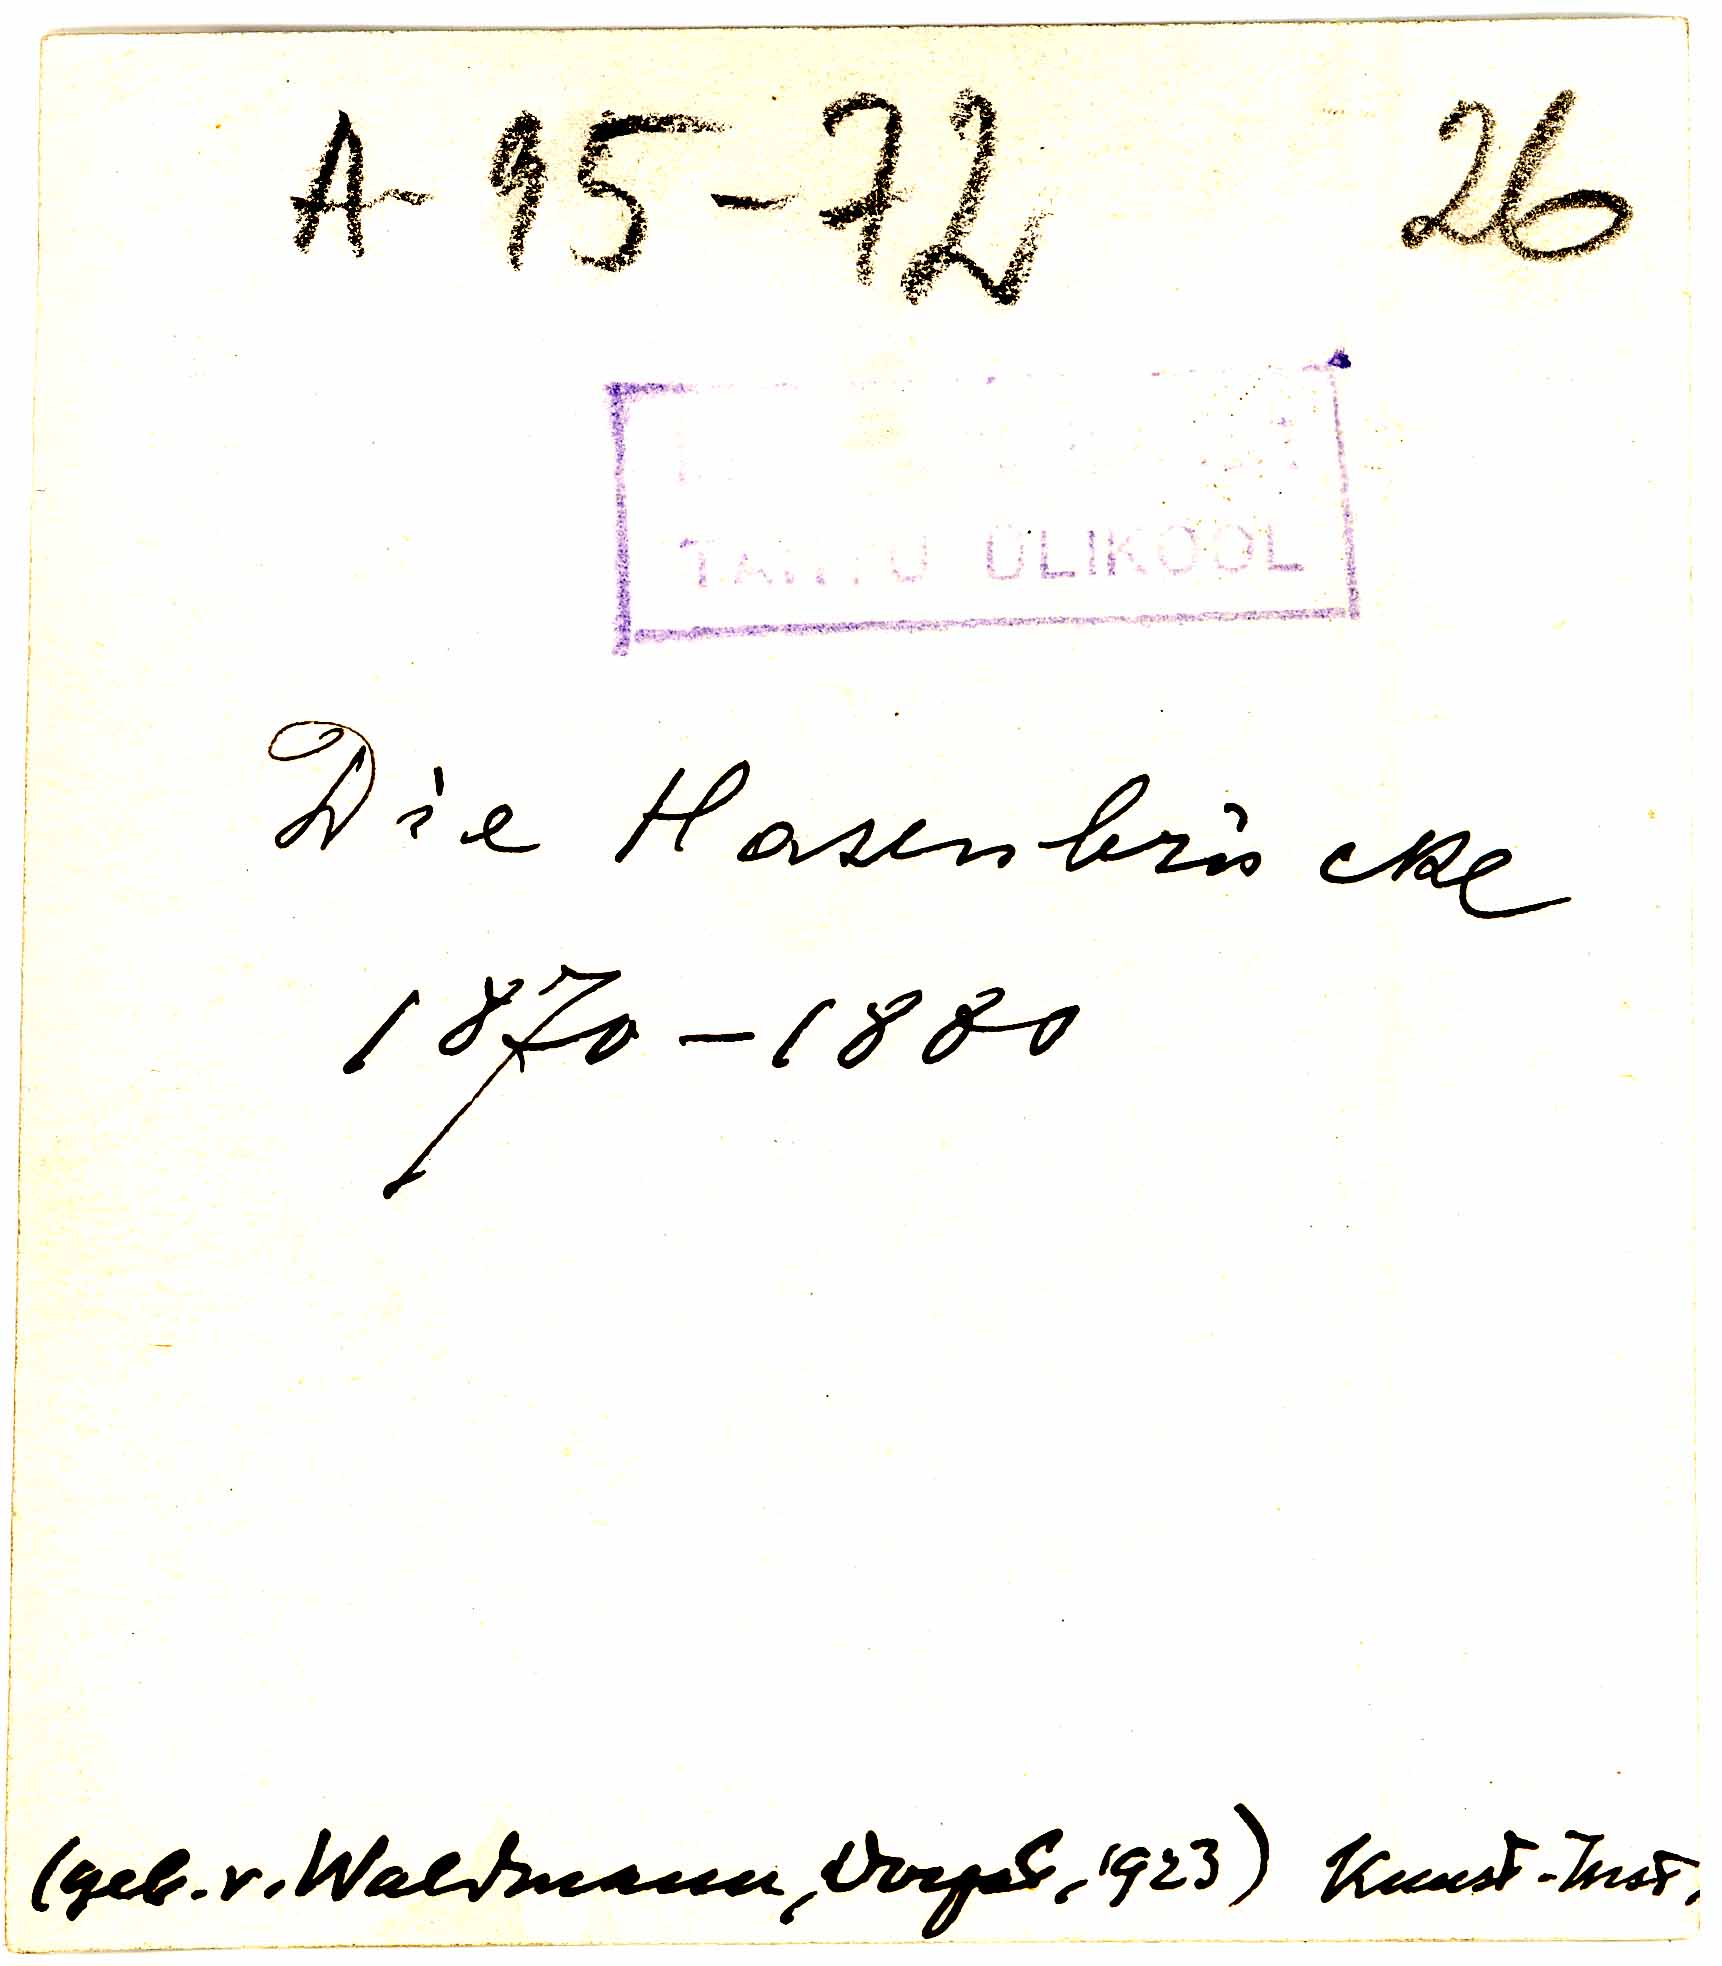 A-95-72 26
TARTU ÜLIKOOL
Die Hasenbrücke
1870-1880
(geb. v. Waldmann, Dorpat, 1923) Kunst-Inst.